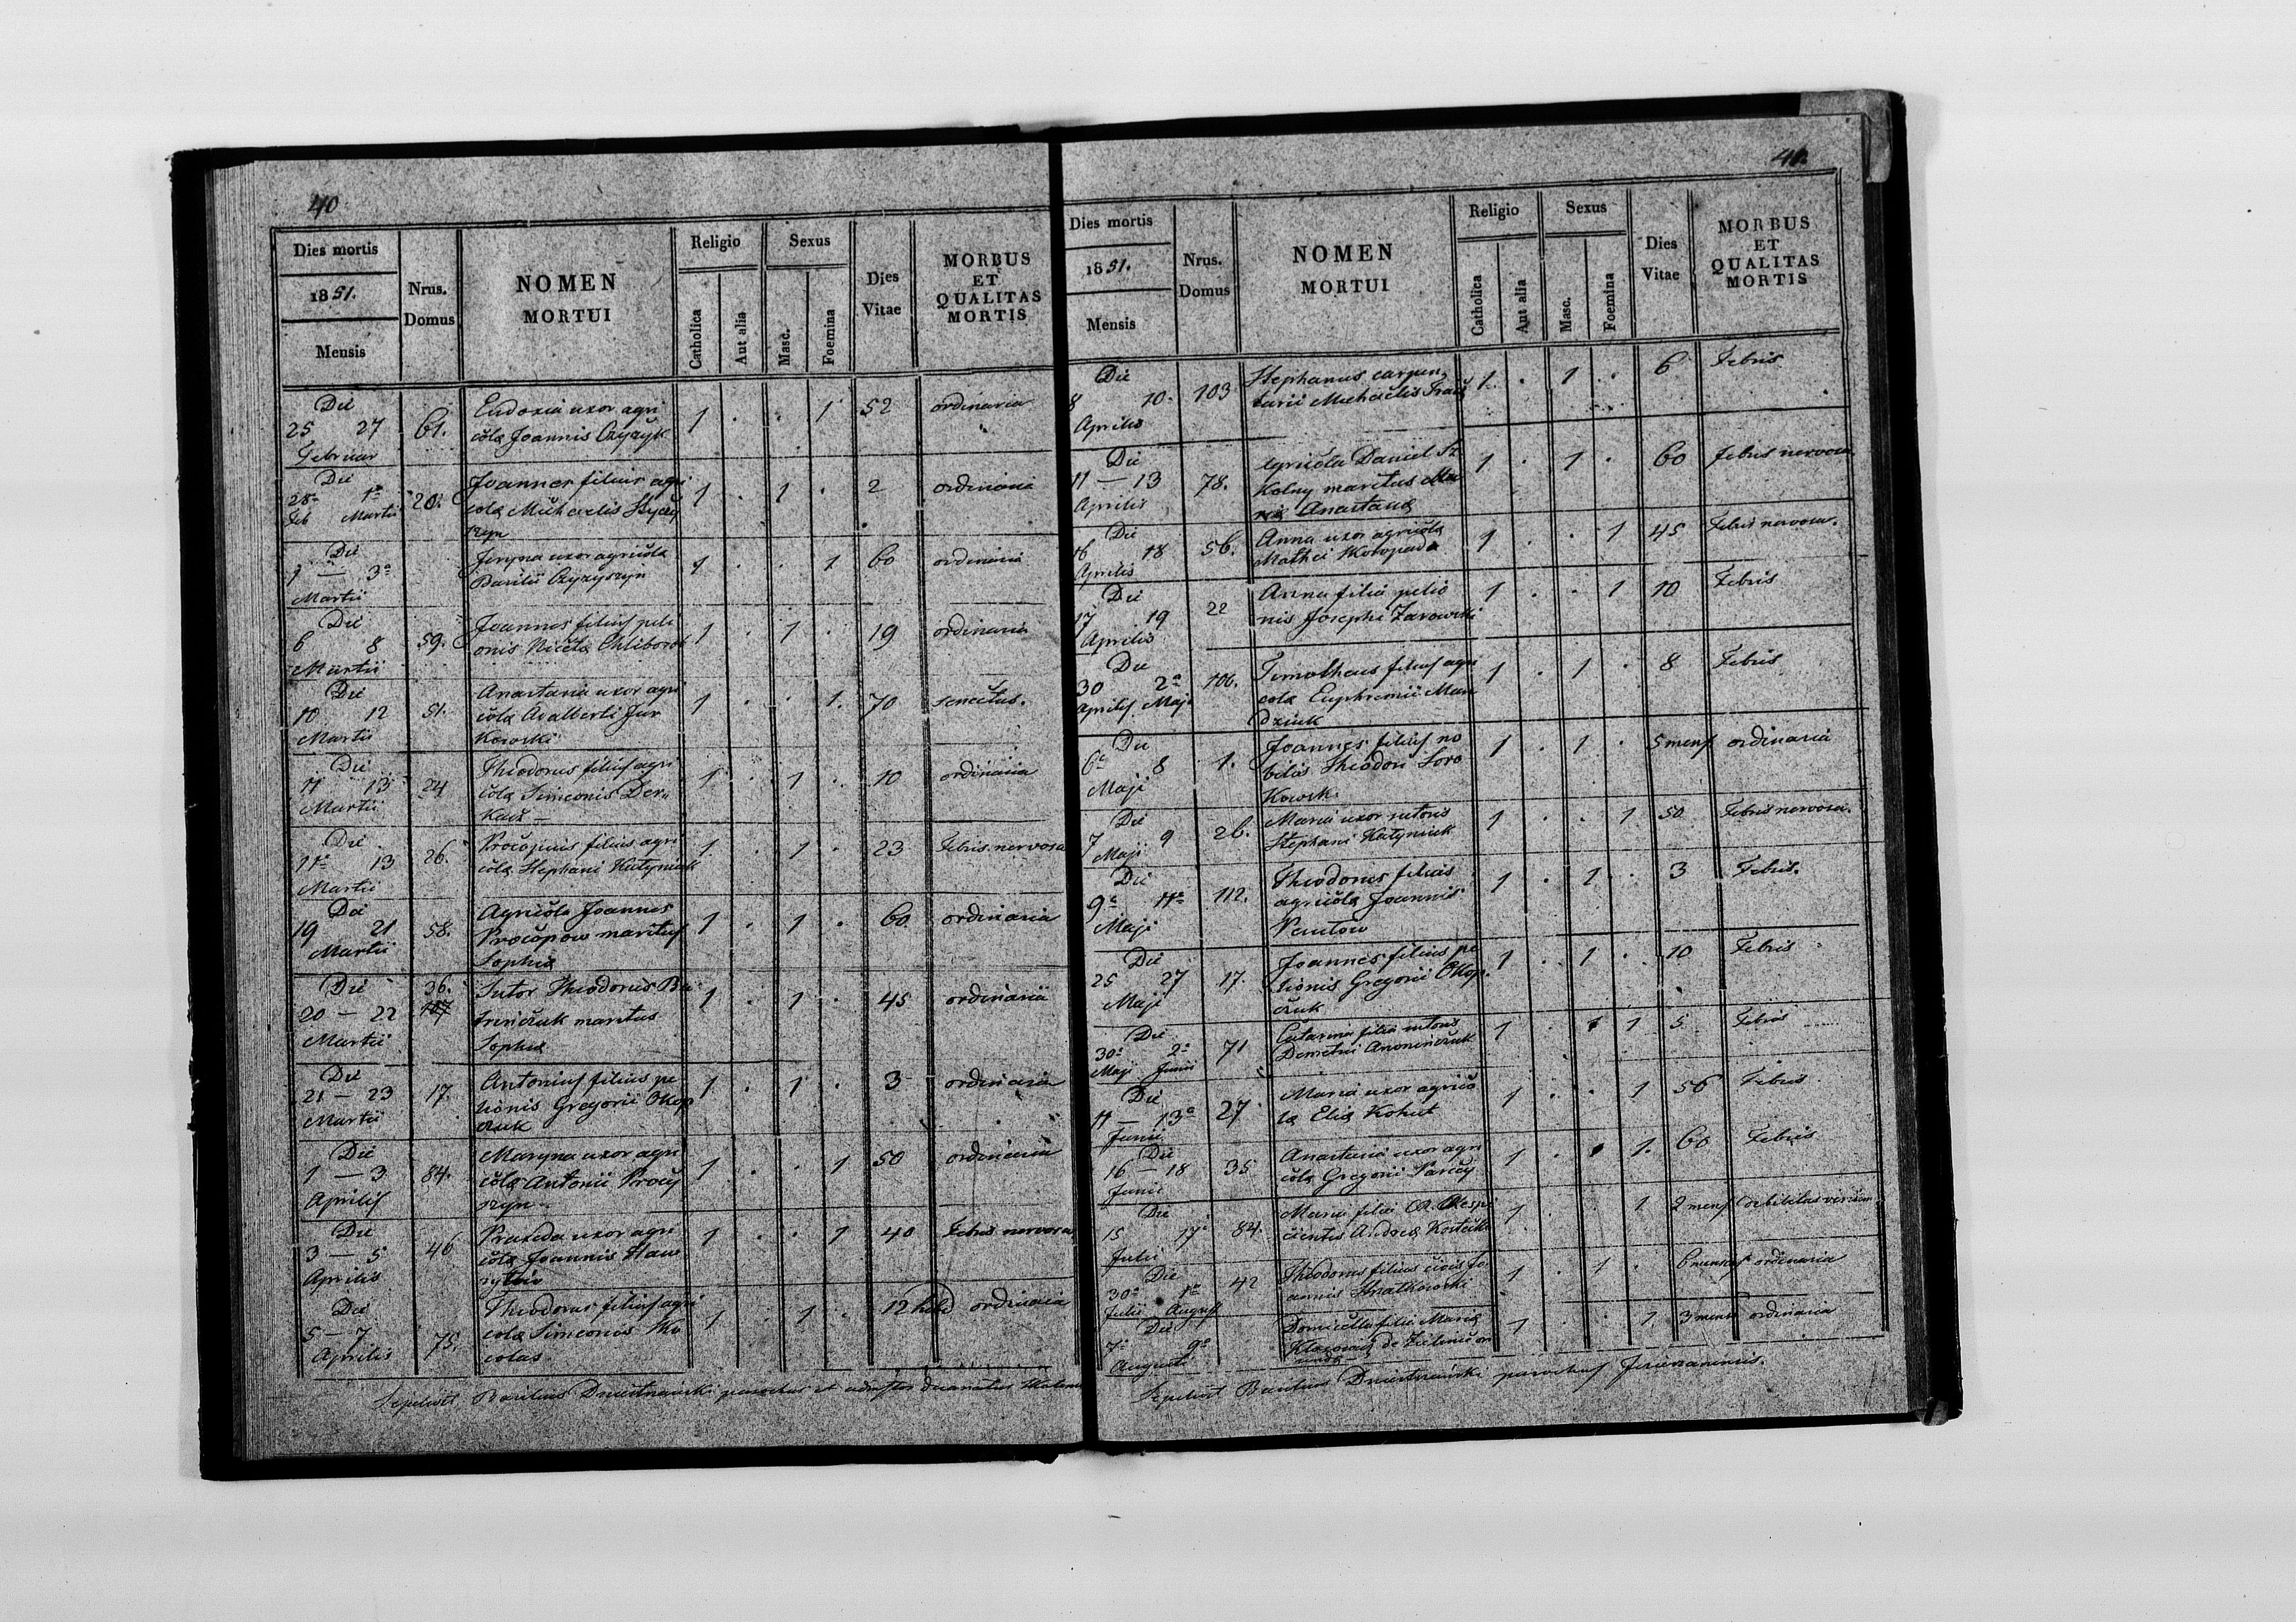 40
Dies mortis
1851.
Mensis
Nrus.
Domus
NOMEN
MORTUI
Religio
Catholica
Aut alia
Sexus
Masc.
Foemina
Dies
Vitae
MORBUS
ET
QUALITAS
MORTIS
Die
25 27
Februar
61.
Eudoxia uxor agri
colæ Joannis Czyżyk
1 . . 1 52 ordinaria
Die
28a 1a
Feb Martii
20.
Joannes filius agri
cola Michaelis
1 . 1 . 2 ordinaria
Die
1 — 3a
Martii
uxor agricola
Basilii Czyzyszyn
1 . . 1 60 ordinaria
Die
6 8
Martii
59.
Joannes filius peli
onis Nicetæ Chliborob
1 . 1 . 19 ordinaria
Die
10 12
Martii
51.
Anastasia uxor agri
cola Adalberti Jur
kowski
1 . . 1. 70 senectus.
Die
11 13
Martii
24
Theodorus filius agri
cola Simeonis Der„
kacz —
1 . 1 . 10 ordinaria
Die
11a 13
Martii
26.
Procopius filius agri
cola Stephani Katyniuk
1. . 1 . 23 Febris nervosa
Die
19 21
Martii
58.
Agricola Joannes
Procopow maritus
Sophiæ
1 . 1 . 60 ordinaria
Die
20 — 22
Martii
36.
Sutor Theodorus
maritus
Sophiæ
1 . 1 . 45 ordinaria
Die
21 — 23
Martii
17.
Antonius filius pe
lionis Gregorii Okop
czuk
1 . 1 . 3 ordinaria
Die
1 — 3
Aprilis
84.
Maryna uxor agri
cola Antonii Procy
szyn
1 . . 1 50 ordinaria
Die
3 — 5
Aprilis
46
Praxeda uxor agri
cola Joannis Haw
ryluw
1 . . 1 40 Febris nervosa
Die
5 — 7
Aprilis
75.
Theodorus filius agri
cola Simeonis
1 . 1 . 12 hebd ordinaria
Sepelivit Basilius parochus et
41.
Dies mortis
1851.
Mensis
Nrus.
Domus
NOMEN
MORTUI
Religio
Catholica
Aut alia
Sexus
Masc.
Foemina
Dies
Vitae
MORBUS
ET
QUALITAS
MORTIS
Die
8 10.
Aprilis
103
Stephanus carpen„
tarii Michaelis
1 . 1 . 6 Febris
Die
11 — 13
Aprilis
78.
Agricola Daniel Sz
kolny maritus

1 . 1 . 60 Febris nervosa
Die
16 18
Aprilis
56.
Anna uxor agricola
Mathei
1 . . 1 45 Febris nervosa.
Die
17 19
Aprilis
22
Anna filia pelio
nis Josephi Zarowski
1 . . 1 10 Febris
Die
30 2a
Aprilis Maji
106.
Timotheus filius agri
cola Euphremii Man
dziuk
1 . 1 . 8 Febris
Die
6a 8
Maji
1.
Joannes filius no
bilis Theodori Soro
kowsk.
1 . 1 . 5 mens ordinaria
Die
7 9
Maji
26.
Maria uxor sutoris
Stephani Katyniuk
1 . . 1 50 Febris nervosa.
Die
9a 11a
Maji
112.
Theodorus filius
agricola Joannis

1 . 1 . 3 Febris.
Die
25 27
Maji
17.
Joannes filius pe
lionis Gregorii Okop„
czuk
1 . 1 . 10 Febris
Die
30a 2a
Maji Junii
71
Catarina filia sutoris
Demetrii
1 . 1 5 Febris
Die
11 — 13a
Junii
27
Maria uxor agrico
la Eliæ Kohut
1 . . 1 56 Febris
Die
16 — 18
Junii
35
Anastasia uxor agri
cola Gregorii
1 . 1. 60 Febris
Die
15 17
Julii
84.
Maria filia
Andreæ
1 . . 1 2 mens debilitas
Die
30a 1a
Julii August
42
Theodorus filius civis Jo
annis Hnatkowski
1 . 1 . 6 mens ordinaria
Die
7a 9a
Augusti
Domicella filia Mariæ
de
1 . . 1 3 mens ordinaria
Sepelivit Basilius parochus